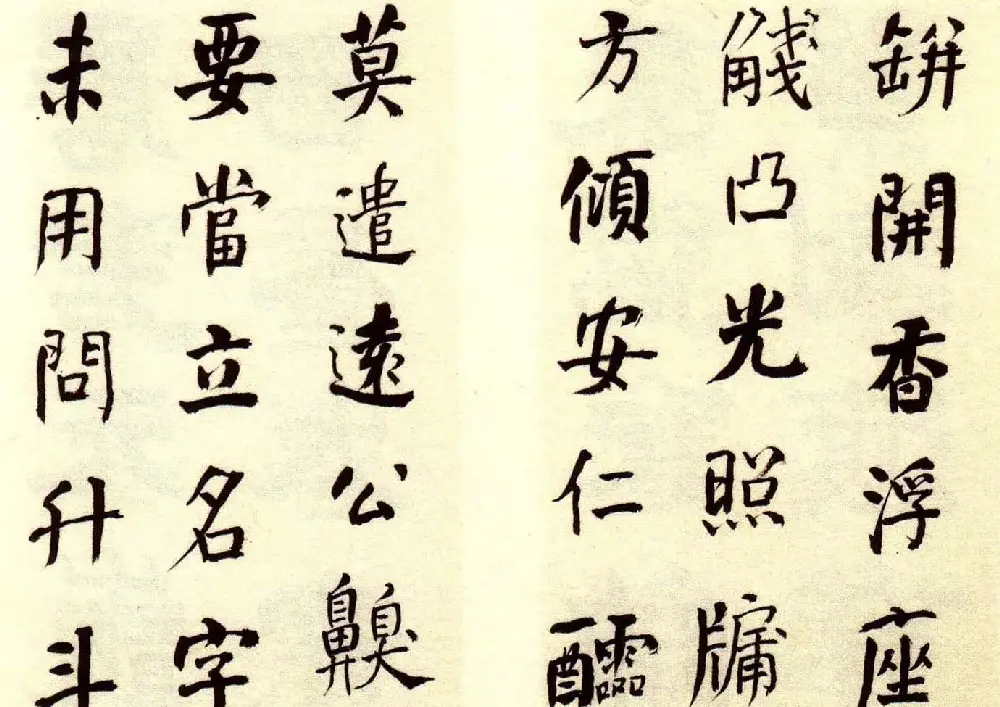 缾開香浮座
凸光照牖
方傾安仁醽
莫遣遠公齅
要當立名字
未用問升斗